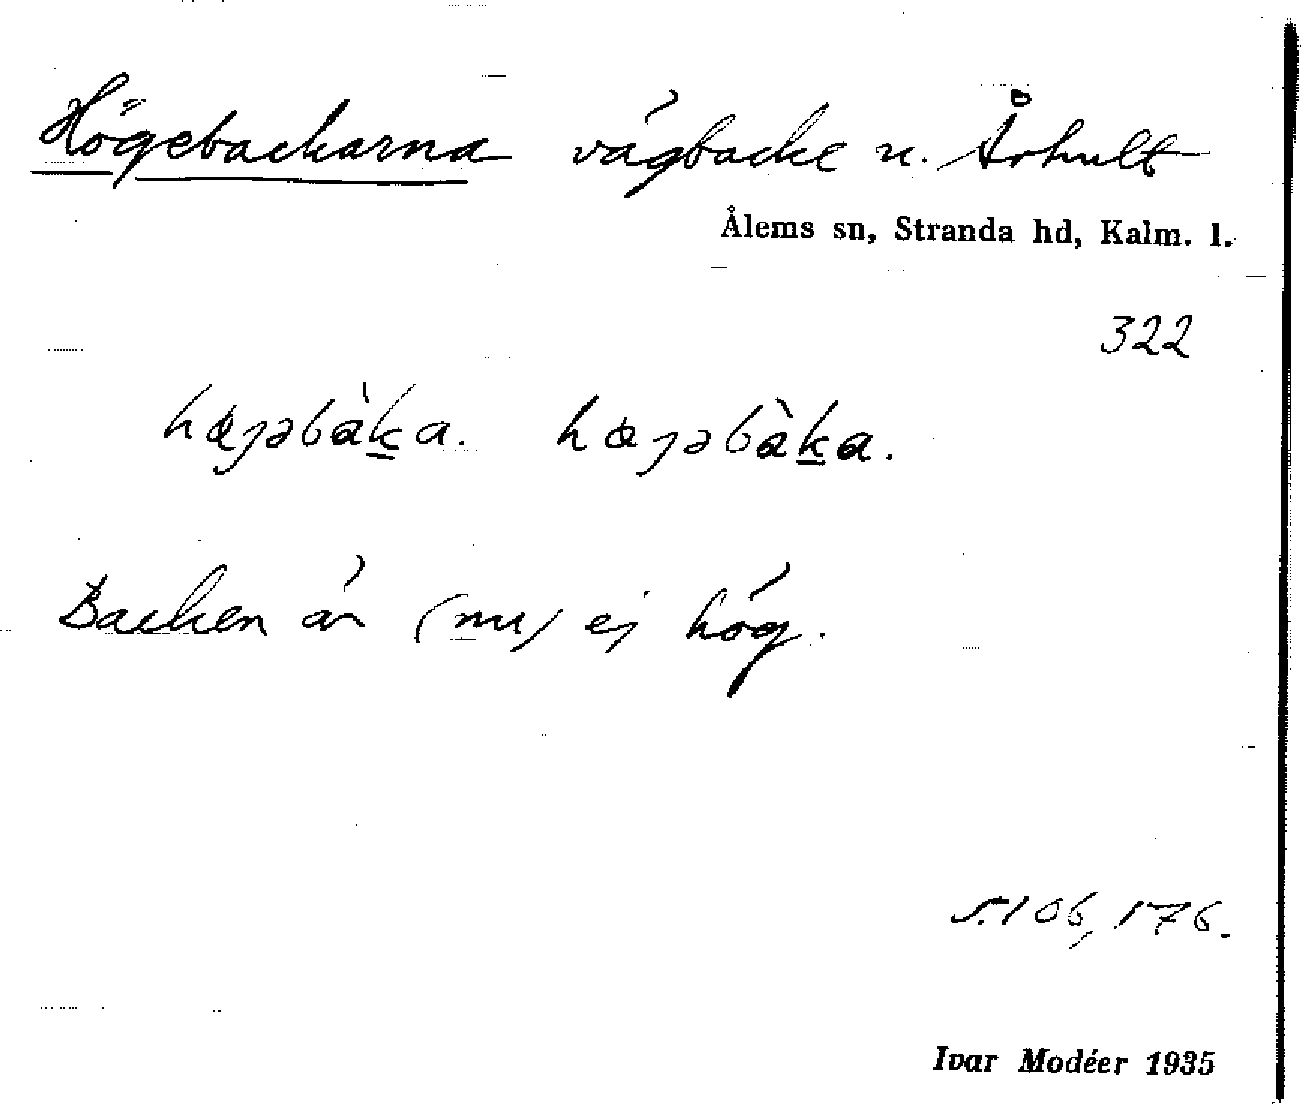 Högebackarna vägbacke n. Århult
Ålems sn, Stranda hd, Kalm. l.
322
hœȷəbàk̲a. hœȷəbàk̲a.
Backen är (nu) ej hög.
s. 106, 176.
Ivar Modéer 1935